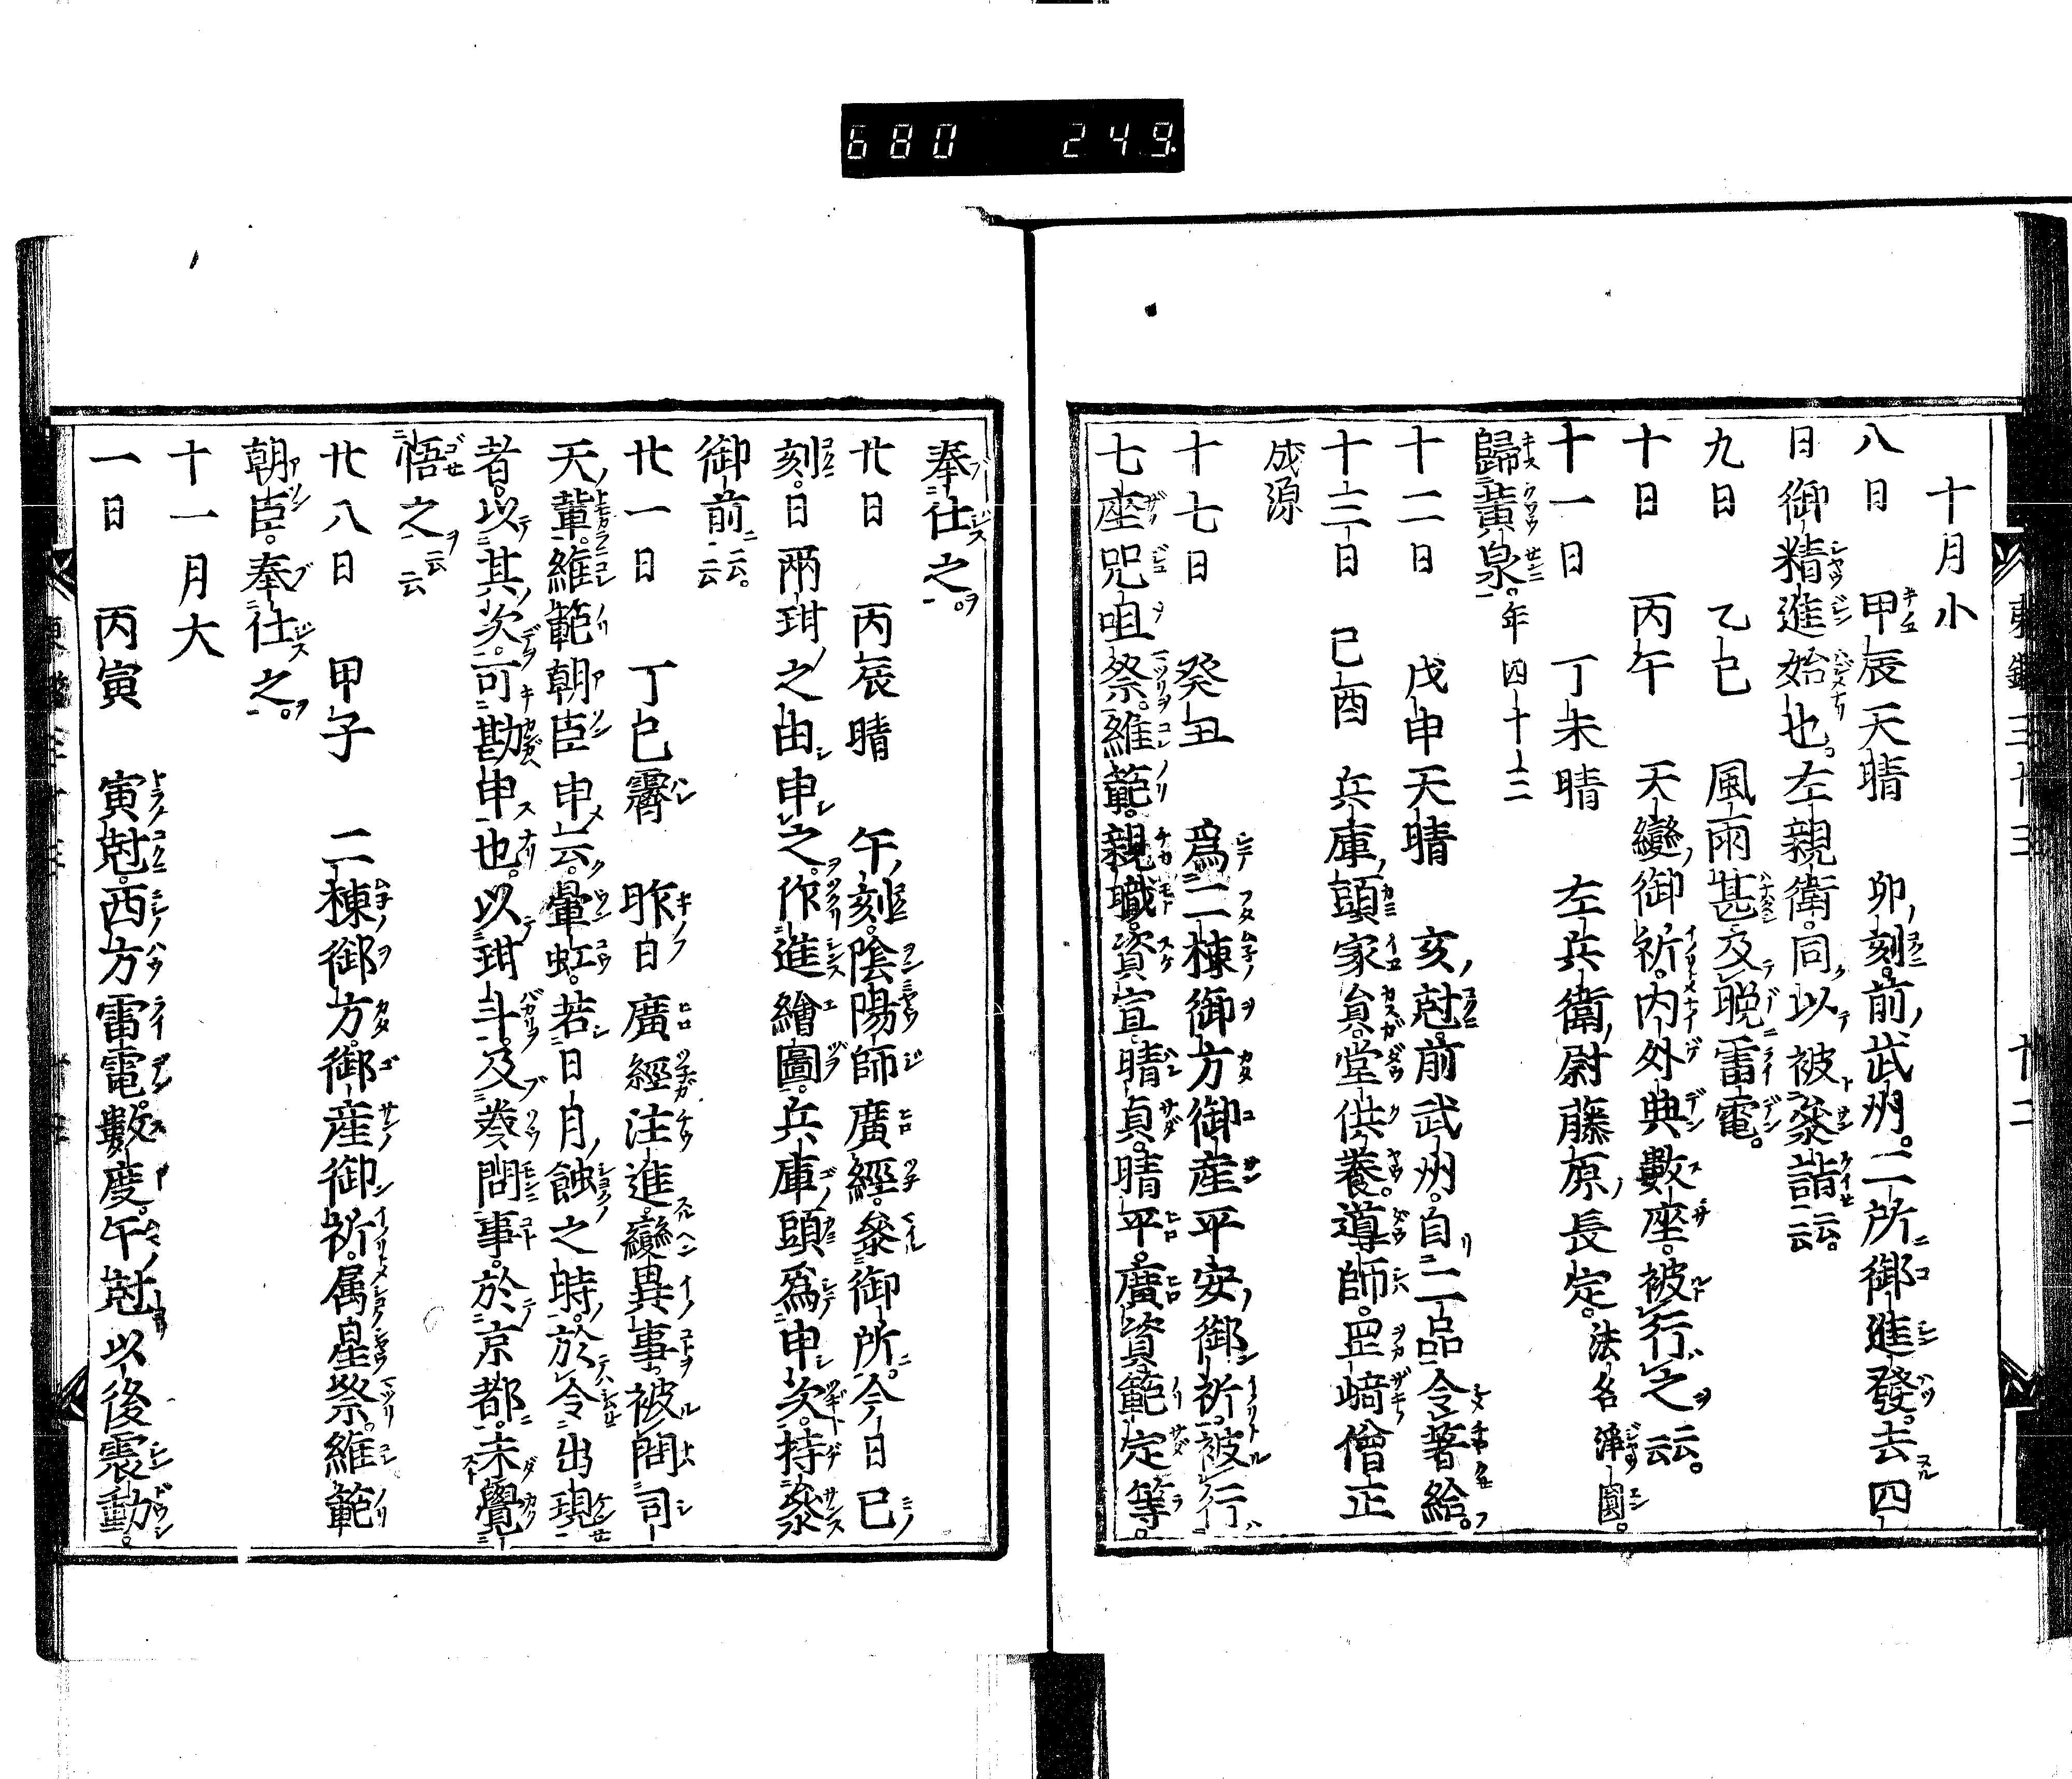 680 249.
十月小
八日 甲辰天晴 卯刻。前武州。二所御進發。去四
日御精進始也。左親衛。同以被參詣云云。
九日 乙巳 風雨甚。及晩雷電。
十日 丙午 天變御祈。内外典數座。被行之云云。
十一日 丁未晴 左兵衛尉藤原長定。法名淨圓。
歸黄泉。年四十二
十二日 戊申天晴 亥尅。前武州。自二品令著給。
十三日 己酉 兵庫頭家員。堂供養。導師。岡崎僧正
成源
十七日 癸丑 爲二棟御方御産平安御祈。被行
七座咒咀祭。維範。親職。資宣。晴貞。晴平。廣資範定等。
奉仕之。
廿日 丙辰晴 午刻。陰陽師廣經。參御所。今日已
刻。日兩珥之由申之。作進繪圖。兵庫頭爲申次。持參
御前云云。
廿一日 丁巳霽 昨日廣經注進。變異事。被問司
天輩。維範朝臣申云。暈虹。若日月蝕之時。於令出現
者。以其次。可勘申也。以珥斗。及蒭問事。於京都。未覺
悟之云云
廿八日 甲子 二棟御方。御産御祈。属星祭。維範
朝臣。奉仕之。
十一月大
一日 丙寅 寅尅。西方雷電。數度。午尅以後震動。